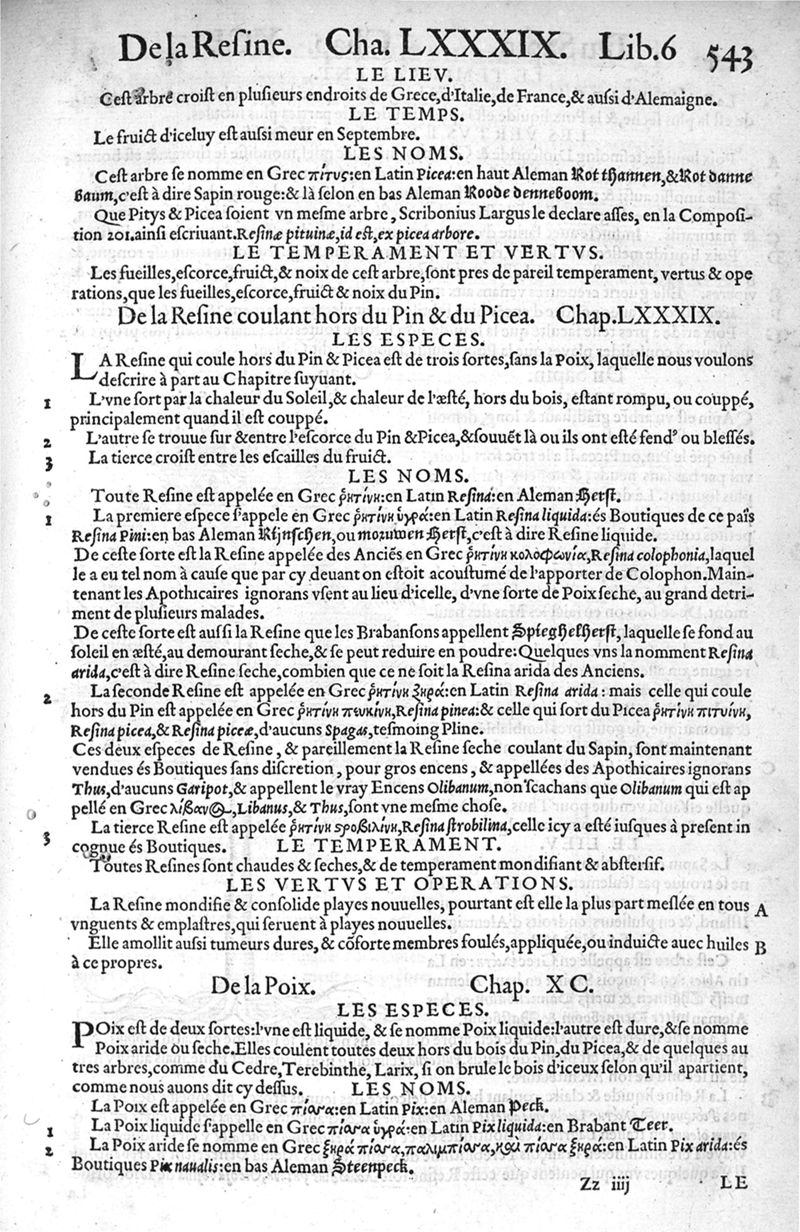 De la Resine. Cha. LXXXIX. Lib. 6 543
LE LIEV.
Cest arbre croist en plusieurs endroits de Grece, d'Italie, de France, & aussi d'Alemaigne.
LE TEMPS.
Le fruict d'iceluy est aussi meur en Septembre.
LES NOMS.
Cest arbre se nomme en Grec πίτυς: en Latin Picea: en haut Aleman Rot thannen, & Rot danne
baum, c'est à dire Sapin rouge: & là selon en bas Aleman Roode denneboom.
Que Pitys & Picea soient vn mesme arbre, Scribonius Largus le declare asses, en la Composi-
tion 201. ainsi escriuant. Resinæ pituinæ, id est, ex picea arbore.
LE TEMPERAMENT ET VERTVS.
Les fueilles, escorce, fruict, & noix de cest arbre, sont pres de pareil temperament, vertus & ope
rations, que les fueilles, escorce, fruict & noix du Pin.
De la Resine coulant hors du Pin & du Picea. Chap. LXXXIX.
LES ESPECES.
LA Resine qui coule hors du Pin & Picea est de trois sortes, sans la Poix, laquelle nous voulons
descrire à part au Chapitre suyuant.
1 L'vne sort par la chaleur du Soleil, & chaleur de l'æsté, hors du bois, estant rompu, ou couppé,
principalement quand il est couppé.
2 L'autre se trouue sur & entre l'escorce du Pin & Picea, & souuēt là ou ils ont esté fendꝰ ou blessés.
3 La tierce croist entre les escailles du fruict.
LES NOMS.
Toute Resine est appelée en Grec ῥητίνη: en Latin Resina: en Aleman Herst.
1 La premiere espece s'appele en Grec ῥητίνη ὑγρά: en Latin Resina liquida: és Boutiques de ce païs
Resina Pini: en bas Aleman Rijnschen, ou mozuwen Herst, c'est à dire Resine liquide.
De ceste sorte est la Resine appelée des Anciēs en Grec ῥητίνη κολοφωνία, Resina colophonia, laquel
le a eu tel nom à cause que par cy deuant on estoit acoustumé de l'apporter de Colophon. Main-
tenant les Apothicaires ignorans vsent au lieu d'icelle, d'vne sorte de Poix seche, au grand detri-
ment de plusieurs malades.
De ceste sorte est aussi la Resine que les Brabansons appellent Spieghelherst, laquelle se fond au
soleil en æsté, au demourant seche, & se peut reduire en poudre: Quelques vns la nomment Resina
arida, c'est à dire Resine seche, combien que ce ne soit la Resina arida des Anciens.
2 La seconde Resine est appelée en Grec ῥητίνη ξηρά: en Latin Resina arida: mais celle qui coule
hors du Pin est appelée en Grec ῥητίνη πευκίνη, Resina pinea: & celle qui sort du Picea ῥητίνη πιτυίνη,
Resina picea, & Resina piceæ, d'aucuns Spagas, tesmoing Pline.
Ces deux especes de Resine, & pareillement la Resine seche coulant du Sapin, sont maintenant
vendues és Boutiques sans discretion, pour gros encens, & appellées des Apothicaires ignorans
Thus, d'aucuns Garipot, & appellent le vray Encens Olibanum, non scachans que Olibanum qui est ap
pellé en Grec λίβανος, Libanus, & Thus, sont vne mesme chose.
3 La tierce Resine est appelée ῥητίνη ϛροβιλίνη, Resina strobilina, celle icy a esté iusques à present in
cognue és Boutiques. LE TEMPERAMENT.
Toutes Resines sont chaudes & seches, & de temperament mondifiant & abstersif.
LES VERTVS ET OPERATIONS.
La Resine mondifie & consolide playes nouuelles, pourtant est elle la plus part meslée en tous A
vnguents & emplastres, qui seruent à playes nouuelles.
Elle amollit aussi tumeurs dures, & cōforte membres foulés, appliquée, ou induicte auec huiles B
à ce propres.
De la Poix. Chap. XC.
LES ESPECES.
POix est de deux sortes: l'vne est liquide, & se nomme Poix liquide: l'autre est dure, & se nomme
Poix aride ou seche. Elles coulent toutes deux hors du bois du Pin, du Picea, & de quelques au
tres arbres, comme du Cedre, Terebinthe, Larix, si on brule le bois d'iceux selon qu'il apartient,
comme nous auons dit cy dessus. LES NOMS.
La Poix est appelée en Grec πίσσα: en Latin Pix: en Aleman Peck.
1 La Poix liquide s'appelle en Grec πίσσα ὑγρά: en Latin Pix liquida: en Brabant Teer.
2 La Poix aride se nomme en Grec ξηρά πίσσα, παλιμπίσσα, καὶ πίσσα ξηρά: en Latin Pix arida: és
Boutiques Pix naualis: en bas Aleman Steenpeck.
Zz iiij LE